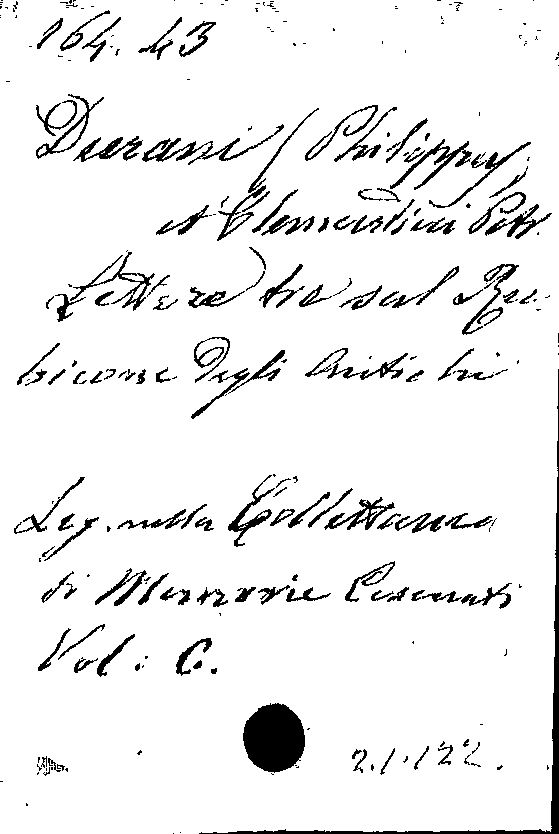 164. 43
Durani (Philippus)
et Clementini Petr.
Lettere tre sul Ru-
bicone degli Antichi
Leg. nella Collettanea
di Memorie Cesenati
Vol: C.
2.1.122.